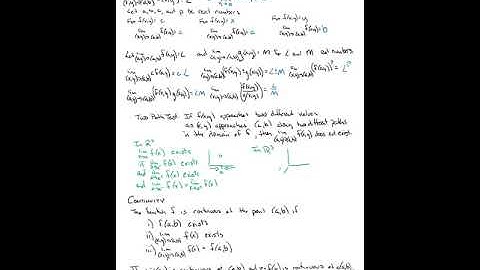 Let a, b, c, and p be real numbers
For f(x,y)=c For f(x,y)=x For f(x,y)=y
lim (x,y)→(a,b) f(x,y)=c lim (x,y)→(a,b) f(x,y)=a lim (x,y)→(a,b) f(x,y)=b
Let lim (x,y)→(a,b) f(x,y)=L and lim (x,y)→(a,b) g(x,y)=M for L and M real numbers
lim (x,y)→(a,b) c f(x,y)=cL lim (x,y)→(a,b) (f(x,y)±g(x,y))=L±M lim (x,y)→(a,b) (f(x,y))^p=L^p
lim (x,y)→(a,b) (f(x,y)g(x,y))=LM lim (x,y)→(a,b) (f(x,y)/g(x,y))=L/M
Two Path Test: If f(x,y) approaches two different values
as (x,y) approaches (a,b) along two different paths
in the domain of f, then lim (x,y)→(a,b) f(x,y) does not exist.
In R²
lim f(x) exists In R³
if lim f(x) exists
and lim f(x) exists
and lim f(x) = lim f(x)
Continuity
The function f is continuous at the point (a,b) if
i) f(a,b) exists
ii) lim (x,y)→(a,b) f(x) exists
iii) lim (x,y)→(a,b) f(x) = f(a,b)
is continuous at (a,b) and is continuous at